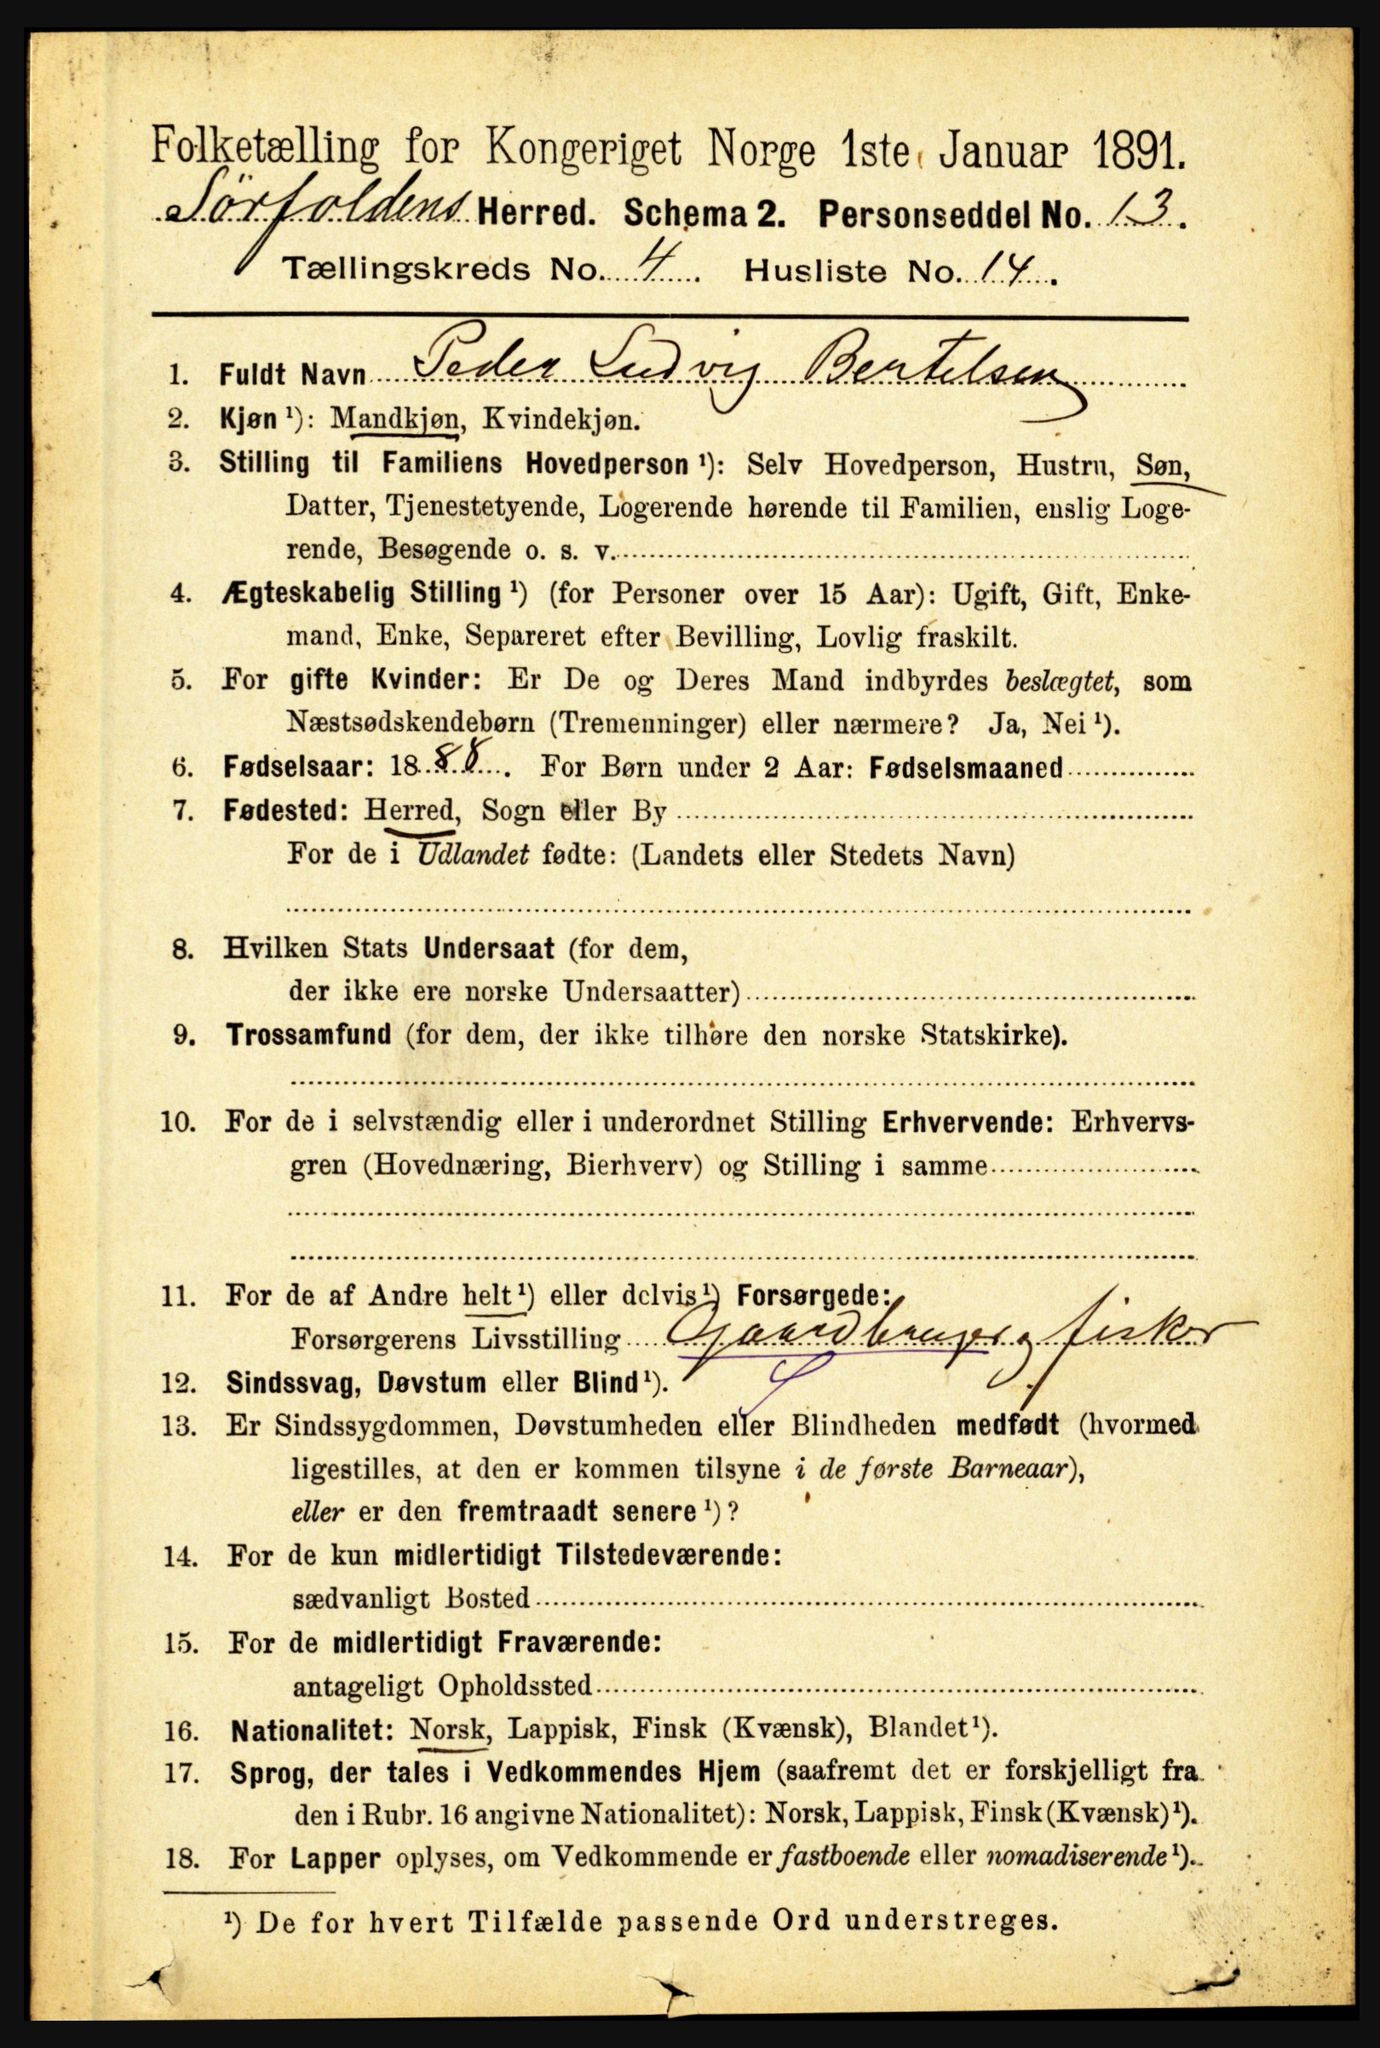 Folketælling for Kongeriget Norge 1ste Januar 1891.
Sørfoldens Herred. Schema 2. Personseddel No. 13.
Tællingskreds No. 4. Husliste No. 14.
1. Fuldt Navn Peder Ludvig Bertelsen
2. Kjøn ¹): Mandkjøn, Kvindekjøn.
3. Stilling til Familiens Hovedperson ¹): Selv Hovedperson, Hustru, Søn,
Datter, Tjenestetyende, Logerende hørende til Familien, enslig Loge-
rende, Besøgende o. s. v.
4. Ægteskabelig Stilling ¹) (for Personer over 15 Aar): Ugift, Gift, Enke-
mand, Enke, Separeret efter Bevilling, Lovlig fraskilt.
5. For gifte Kvinder: Er De og Deres Mand indbyrdes beslægtet, som
Næstsødskendebørn (Tremenninger) eller nærmere? Ja, Nei ¹).
6. Fødselsaar: 1888. For Børn under 2 Aar: Fødselsmaaned
7. Fødested: Herred, Sogn eller By
For de i Udlandet fødte: (Landets eller Stedets Navn)
8. Hvilken Stats Undersaat (for dem,
der ikke ere norske Undersaatter)
9. Trossamfund (for dem, der ikke tilhøre den norske Statskirke).
10. For de i selvstændig eller i underordnet Stilling Erhvervende: Erhvervs-
gren (Hovednæring, Bierhverv) og Stilling i samme
11. For de af Andre helt ¹) eller delvis ¹) Forsørgede:
Forsørgerens Livsstilling Gaardbruger og fisker
12. Sindssvag, Døvstum eller Blind ¹).
13. Er Sindssygdommen, Døvstumheden eller Blindheden medfødt (hvormed
ligestilles, at den er kommen tilsyne i de første Barneaar),
eller er den fremtraadt senere ¹)?
14. For de kun midlertidigt Tilstedeværende:
sædvanligt Bosted
15. For de midlertidigt Fraværende:
antageligt Opholdssted
16. Nationalitet: Norsk, Lappisk, Finsk (Kvænsk), Blandet ¹).
17. Sprog, der tales i Vedkommendes Hjem (saafremt det er forskjelligt fra
den i Rubr. 16 angivne Nationalitet): Norsk, Lappisk, Finsk (Kvænsk) ¹).
18. For Lapper oplyses, om Vedkommende er fastboende eller nomadiserende ¹).
¹) De for hvert Tilfælde passende Ord understreges.